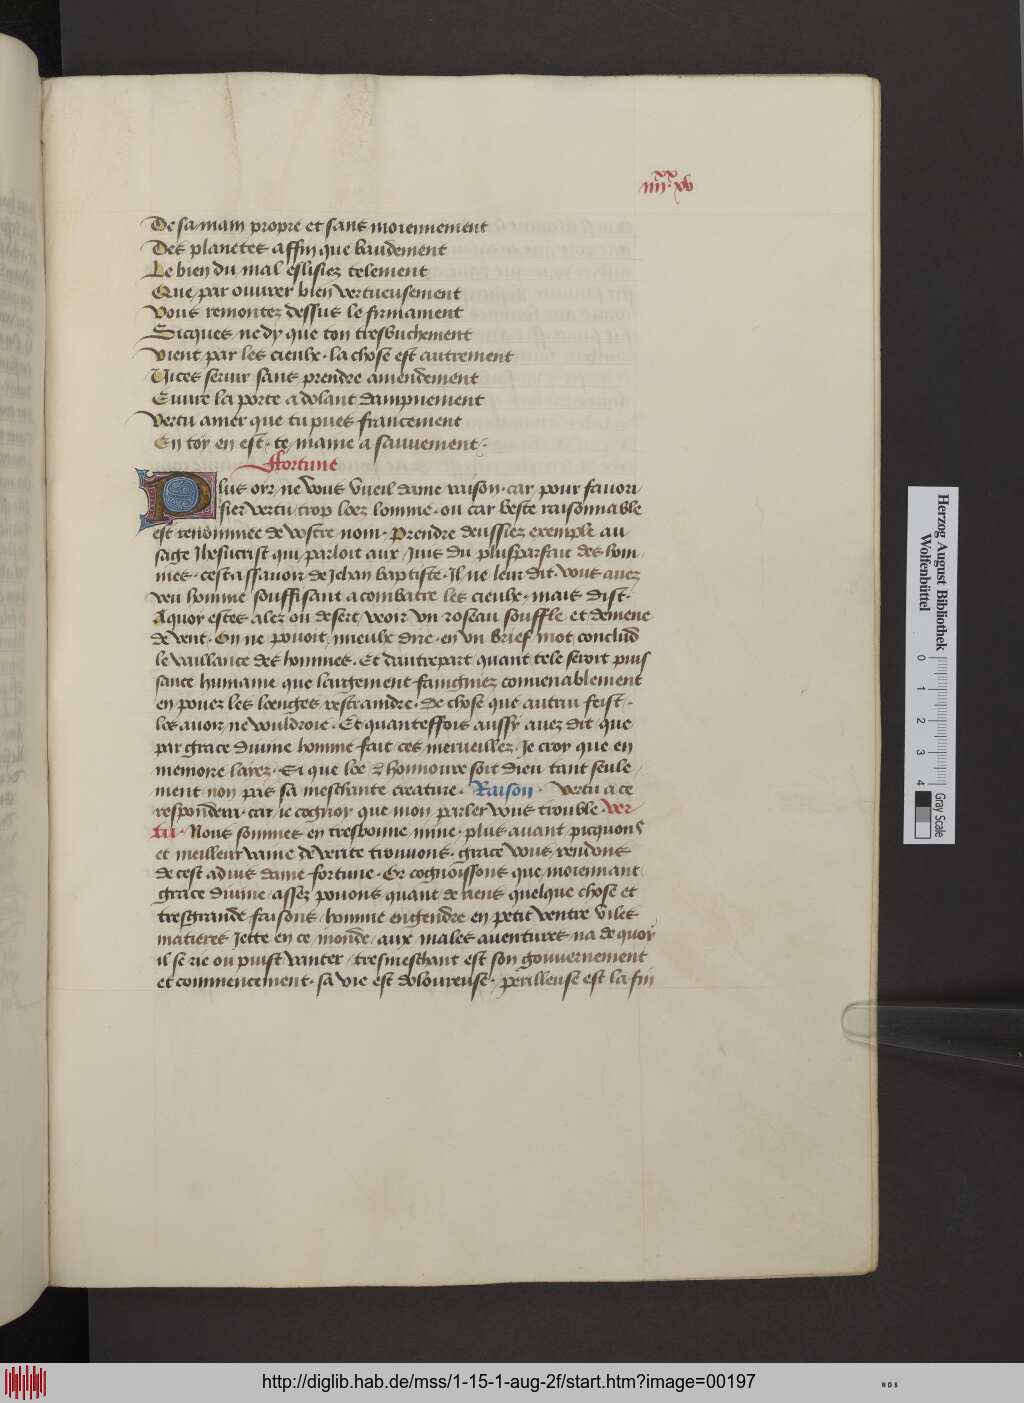 iiii xx xv
De sa main propre et sans moiennement
Des planetes affin que baudement
Le bien du mal eslisiez telement
Que par ouvrer bien vertueusement
Vous remontez dessus le firmament
Sicques ne dy que ton tresbuchement
Vient par les cieulx · la chose est autrement
Vices servir sans prendre amendement
Euvre la porte a dolant dampnement
Vertu amer que tu pues francement
En toy en est · te maine a sauvement ·
Ffortune
Plus oyr ne vous vueil dame raison · car pour favori
sier vertu trop loez lomme · ou car beste raisonnable
est renommee de vostre nom · Prendre deussiez exemple au
sage Jhesucrist qui parloit aux Juis du plusparfait des hom
mes · cest assavoir de Jehan baptiste · Il ne leur dit · vous avez
veu homme souffisant a combatre les cieulx · mais dist ·
Aquoy estes alez ou desert veoir un roseau souffle et demene
de vent · On ne povoit mieulx dire · en un brief mot conclud
le vaillance des hommes · Et dautrepart quant tele seroit puis
sance humaine que largement faingniez convenablement
en povez les loenges restraindre · de chose que autrui feist ·
los avoir ne vouldroie · Et quanteffois aussy avez dit que
par grace divine homme fait ces merveilles · Je croy que en
memoire layez · Et que loe et honnoure soit dieu tant seule
ment non pas sa meschante creature · Raison · Vertu a ce
respondera · car ie cognoy que mon parler vous trouble · Ver
tu · Nous sommes en tresbonne mine · plus avant picquons
et meilleur vaine de verite trouvons · grace vous rendons
de cest advis dame fortune · Or cognoissons que moiennant
grace divine assez povons quant de riens quelque chose et
tresgrande faisons homme engendre en petit ventre viles
matieres Jette en ce monde aux males aventures na de quoy
il se rie ou puist vanter tresmeschant est son gouvernement
et commencement · sa vie est doloureuse · perilleuse est la fin
Herzog August Bibliothek
Wolfenbüttel
0 1 2 3 4
Gray Scale
http://diglib.hab.de/mss/1-15-1-aug-2f/start.htm?image=00197